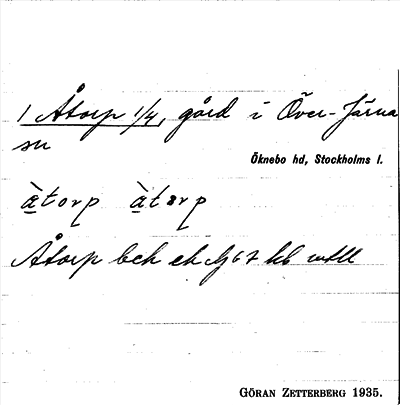 1 Åtorp 1/4, gård i Över-Järna
sn
Öknebo hd, Stockholms l.
àtorp àtorp
Åtorp bch ek hg 67 kb
GÖRAN ZETTERBERG 1935.